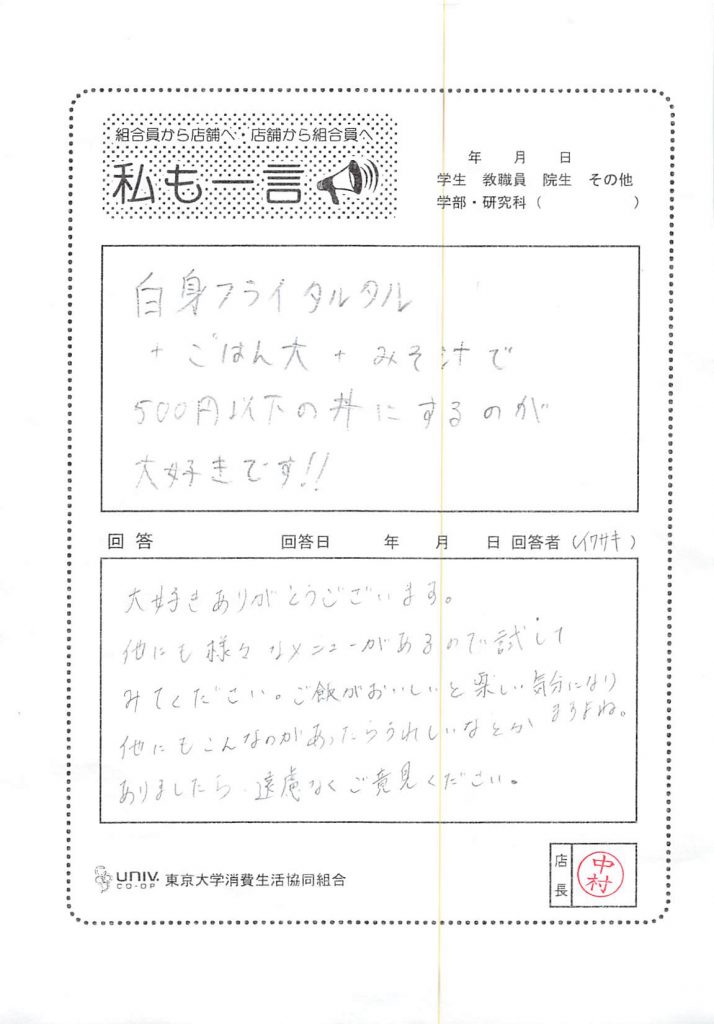 組合員から店舗へ・店舗から組合員へ
私も一言
年 月 日
学生 教職員 院生 その他
学部・研究科（ ）
白身フライタルタル
+ ごはん大 + みそ汁で
500円以下の丼にするのが
大好きです!!
回答 回答日 年 月 日 回答者（イワサキ）
大好きありがとうございます。
他にも様々なメニューがあるので試して
みてください。ご飯がおいしいと楽しい気分になり
ますよね。
他にもこんなのがあったらうれしいなとか
ありましたら遠慮なくご意見ください。
UNIV. CO-OP 東京大学消費生活協同組合
店長 中村